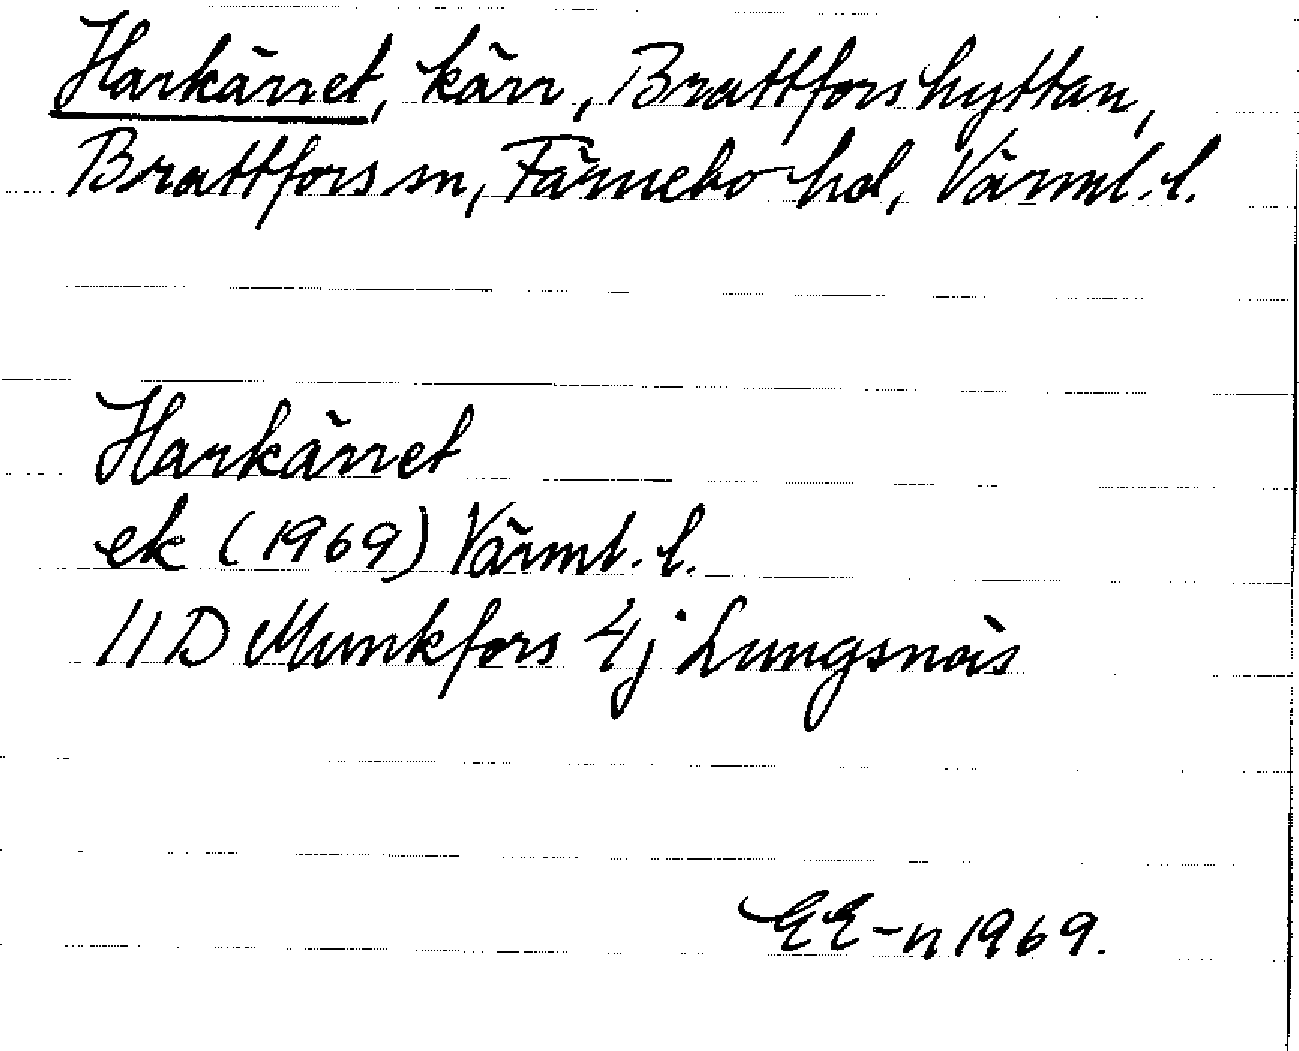 Harkärret, kärr, Brattforshyttan,
Brattfors sn, Färnebo hd, Värml. l.
Harkärret
ek (1969) Värml. l.
11D Munkfors 4j Lungsnäs
EE-n 1969.